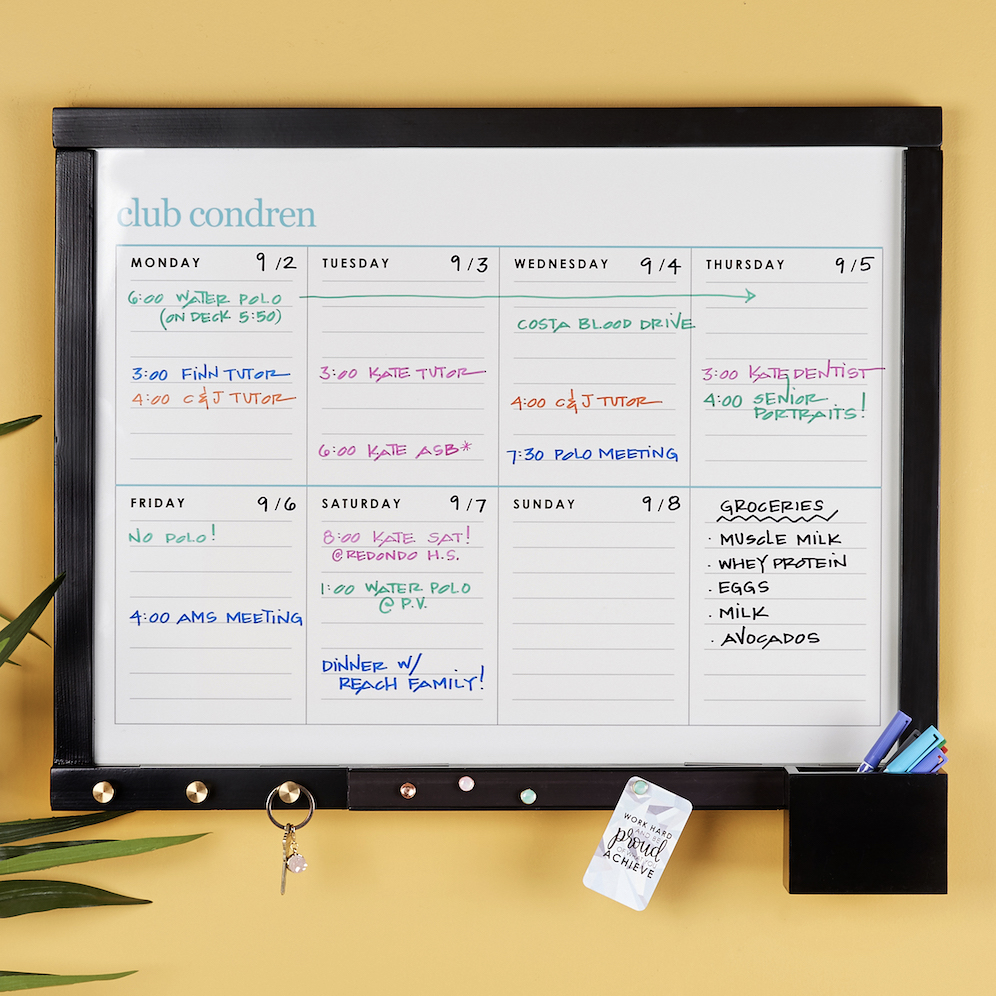 club condren
MONDAY 9/2
6:00 WATER POLO
(ON DECK 5:50)
3:00 FINN TUTOR
4:00 C&J TUTOR
TUESDAY 9/3
3:00 KATE TUTOR
6:00 KATE ASB*
WEDNESDAY 9/4
COSTA BLOOD DRIVE
4:00 C&J TUTOR
7:30 POLO MEETING
THURSDAY 9/5
3:00 KATE DENTIST
4:00 SENIOR
PORTRAITS!
FRIDAY 9/6
NO POLO!
4:00 AMS MEETING
SATURDAY 9/7
8:00 KATE SAT!
@REDONDO H.S.
1:00 WATER POLO
@ P.V.
DINNER W/
REACH FAMILY!
SUNDAY 9/8
GROCERIES
· MUSCLE MILK
· WHEY PROTEIN
· EGGS
· MILK
· AVOCADOS
WORK HARD
AND BE
proud
OF WHAT YOU
ACHIEVE